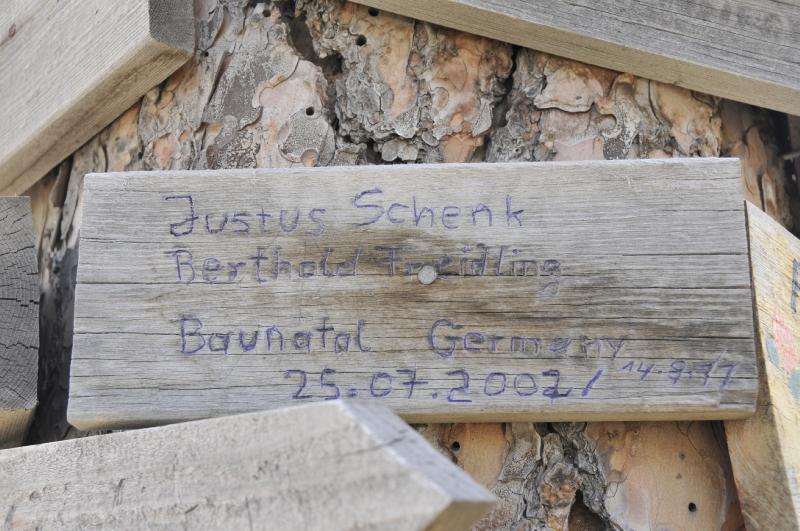 Justus Schenk
Berthold Freidling
Baunatal Germany
25.07.2002/ 14.8.77